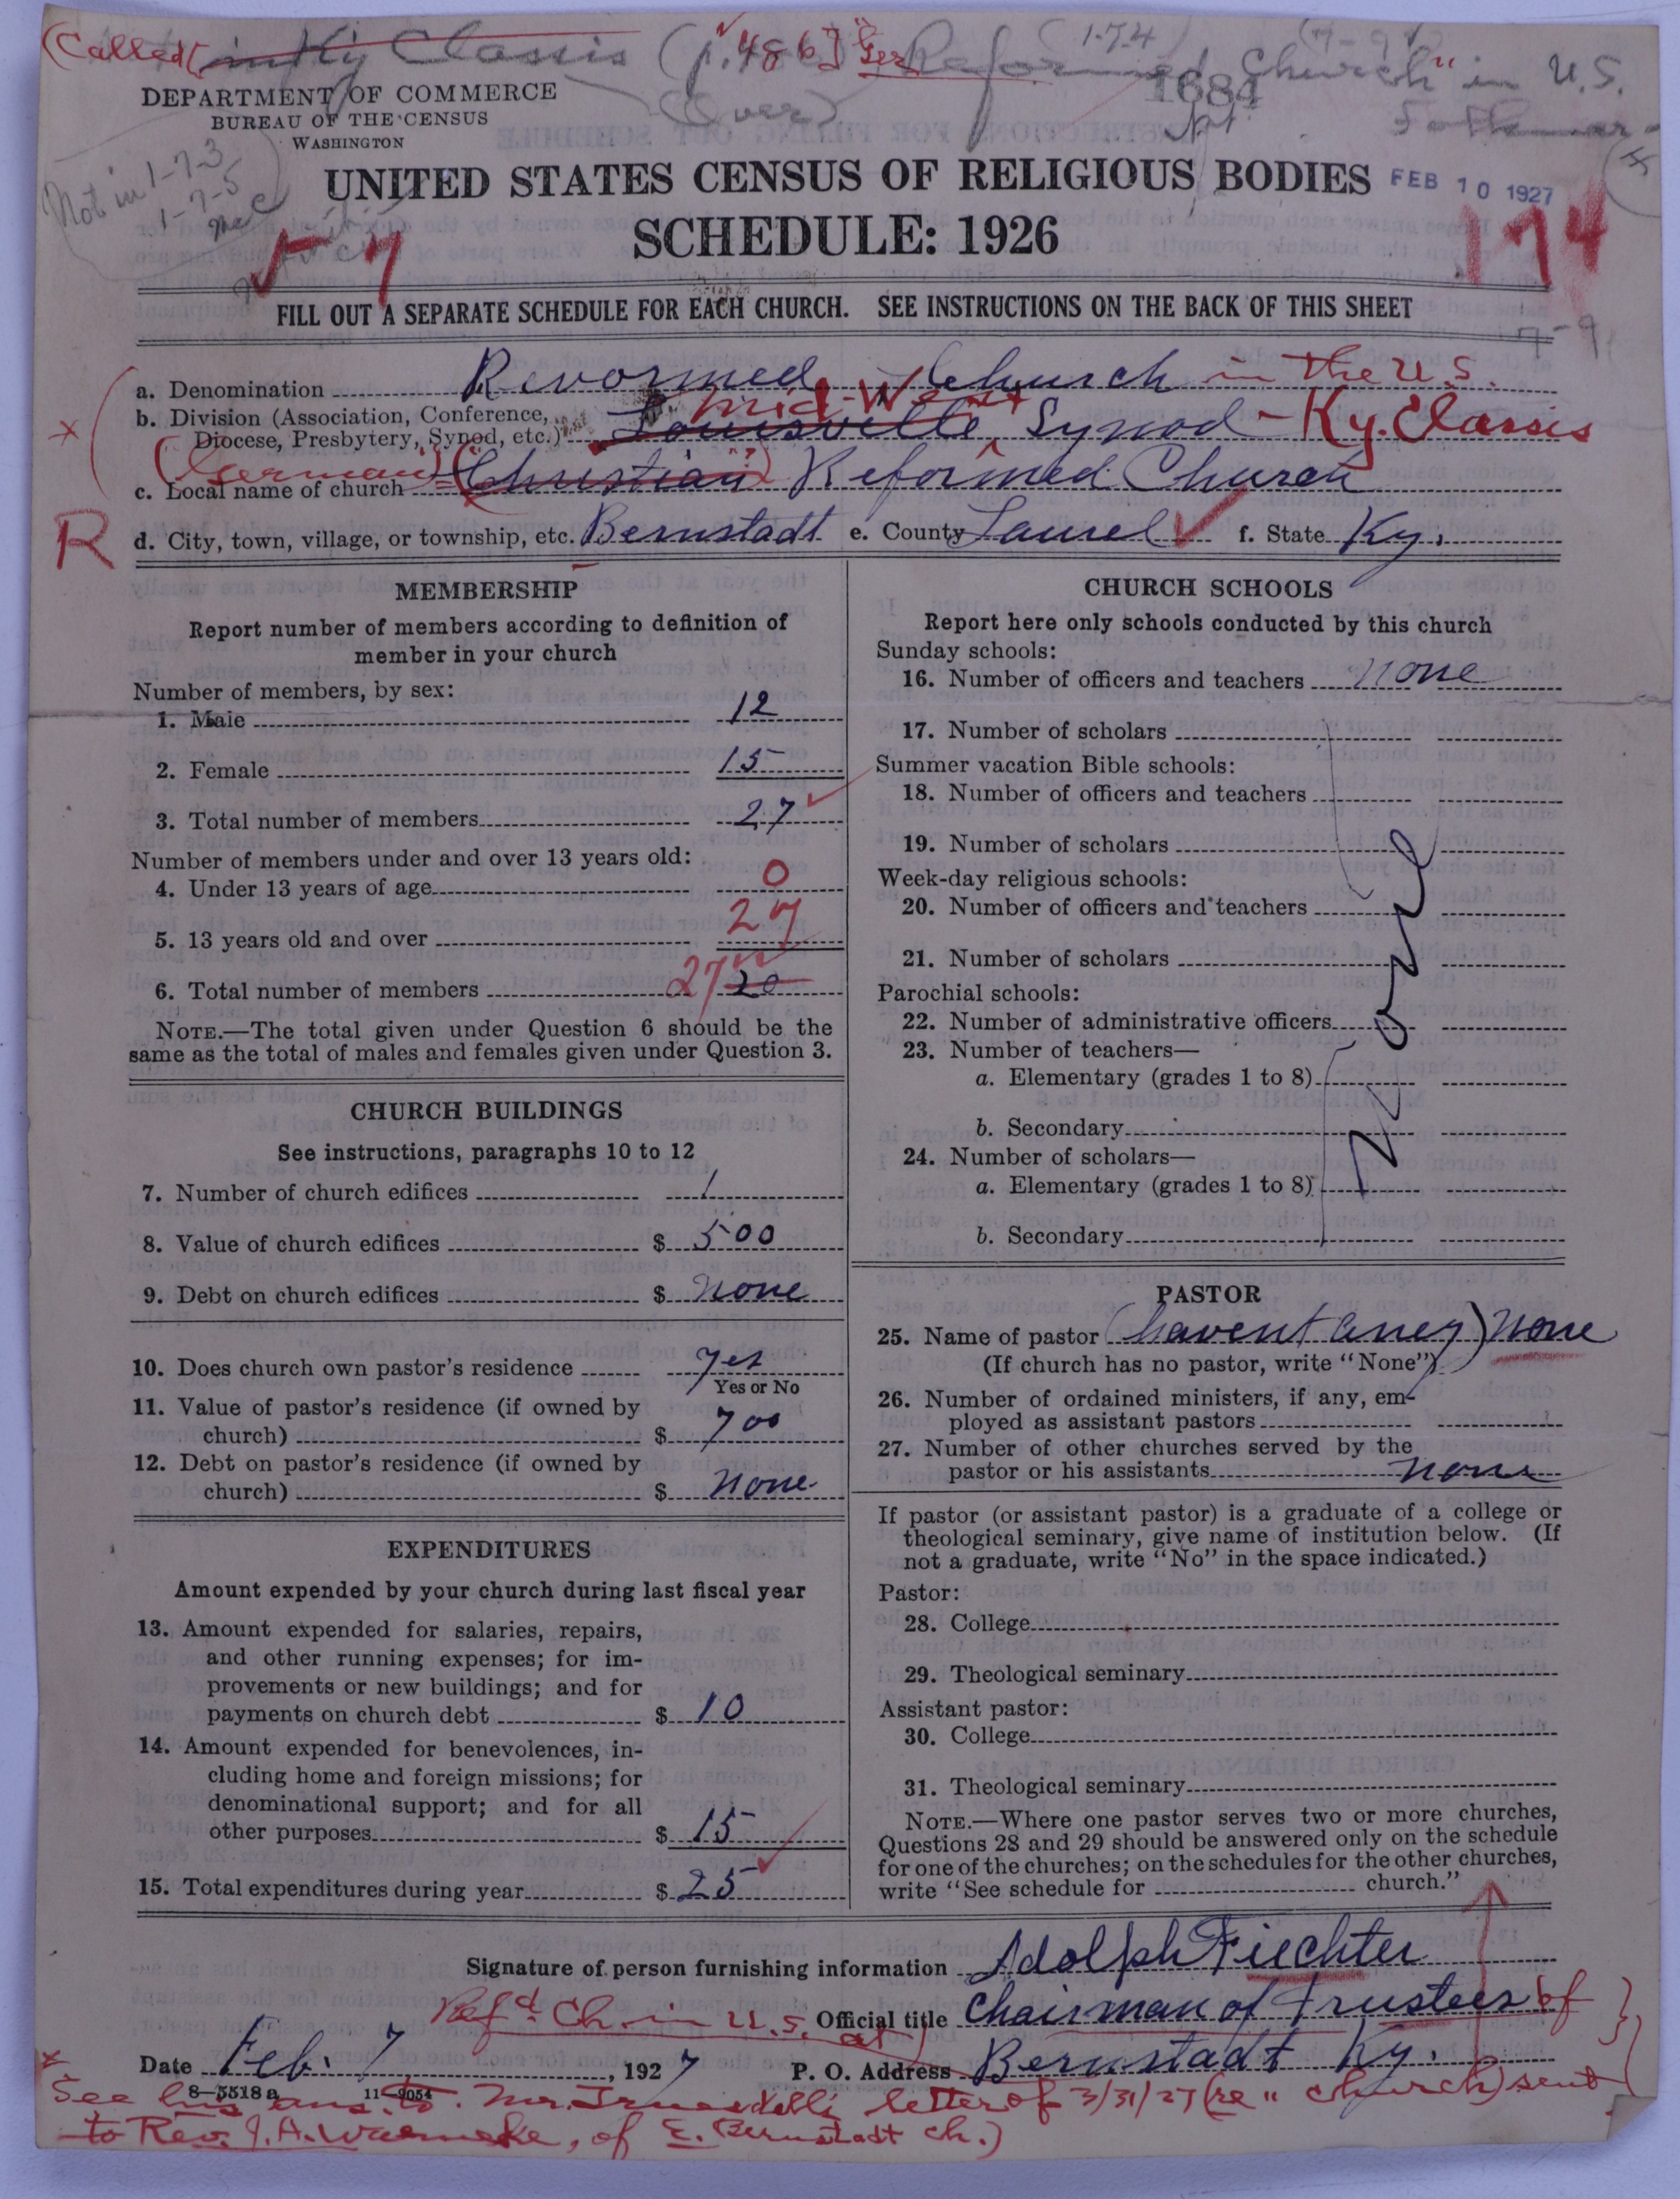 (Called [in Ky Classis (p. 486)] "Ger Reformed Church" in U.S.
(1-7-4)
(7-9
(Over)
1684
DEPARTMENT OF COMMERCE
BUREAU OF THE CENSUS
WASHINGTON
Not in 1-7-3
1-7-5
UNITED STATES CENSUS OF RELIGIOUS BODIES
FEB 10 1927
SCHEDULE: 1926
7
174
FILL OUT A SEPARATE SCHEDULE FOR EACH CHURCH. SEE INSTRUCTIONS ON THE BACK OF THIS SHEET
7-9
a. Denomination Revormed Church in the U.S.
b. Division (Association, Conference, Diocese, Presbytery, Synod, etc.) Louisville Mid-West Synod - Ky. Classis
c. Local name of church (German) (Christian) Reformed Church
R
d. City, town, village, or township, etc. Bernstadt e. County Laurel f. State Ky.
MEMBERSHIP
Report number of members according to definition of
member in your church
Number of members, by sex:
1. Male 12
2. Female 15
3. Total number of members 27
Number of members under and over 13 years old:
4. Under 13 years of age 0
5. 13 years old and over 27
6. Total number of members 27 20
NOTE.—The total given under Question 6 should be the
same as the total of males and females given under Question 3.
CHURCH BUILDINGS
See instructions, paragraphs 10 to 12
7. Number of church edifices 1
8. Value of church edifices $ 500
9. Debt on church edifices $ none
10. Does church own pastor's residence yes
Yes or No
11. Value of pastor's residence (if owned by
church) $ 700
12. Debt on pastor's residence (if owned by
church) $ none
EXPENDITURES
Amount expended by your church during last fiscal year
13. Amount expended for salaries, repairs,
and other running expenses; for im-
provements or new buildings; and for
payments on church debt $ 10
14. Amount expended for benevolences, in-
cluding home and foreign missions; for
denominational support; and for all
other purposes $ 15
15. Total expenditures during year $ 25
CHURCH SCHOOLS
Report here only schools conducted by this church
Sunday schools:
16. Number of officers and teachers none
17. Number of scholars
Summer vacation Bible schools:
18. Number of officers and teachers
19. Number of scholars
Week-day religious schools:
20. Number of officers and teachers
21. Number of scholars
Parochial schools:
22. Number of administrative officers
23. Number of teachers—
a. Elementary (grades 1 to 8)
b. Secondary
24. Number of scholars—
a. Elementary (grades 1 to 8)
b. Secondary
None
PASTOR
25. Name of pastor (havent aney) none
(If church has no pastor, write "None")
26. Number of ordained ministers, if any, em-
ployed as assistant pastors
27. Number of other churches served by the
pastor or his assistants none
If pastor (or assistant pastor) is a graduate of a college or
theological seminary, give name of institution below. (If
not a graduate, write "No" in the space indicated.)
Pastor:
28. College
29. Theological seminary
Assistant pastor:
30. College
31. Theological seminary
NOTE.—Where one pastor serves two or more churches,
Questions 28 and 29 should be answered only on the schedule
for one of the churches; on the schedules for the other churches,
write "See schedule for church."
Signature of person furnishing information Adolph Fiechter
Official title Chairman of Trustees of
Ref'd Ch. in U.S. at
Date Feb. 7, 1927 P. O. Address Bernstadt Ky.
8-5518 a 11-9054
See his ans. to Mr. Truesdell's letter of 3/31/27 (re " church) sent
to Rev. J. A. Warneke, of E. Bernstadt ch.)